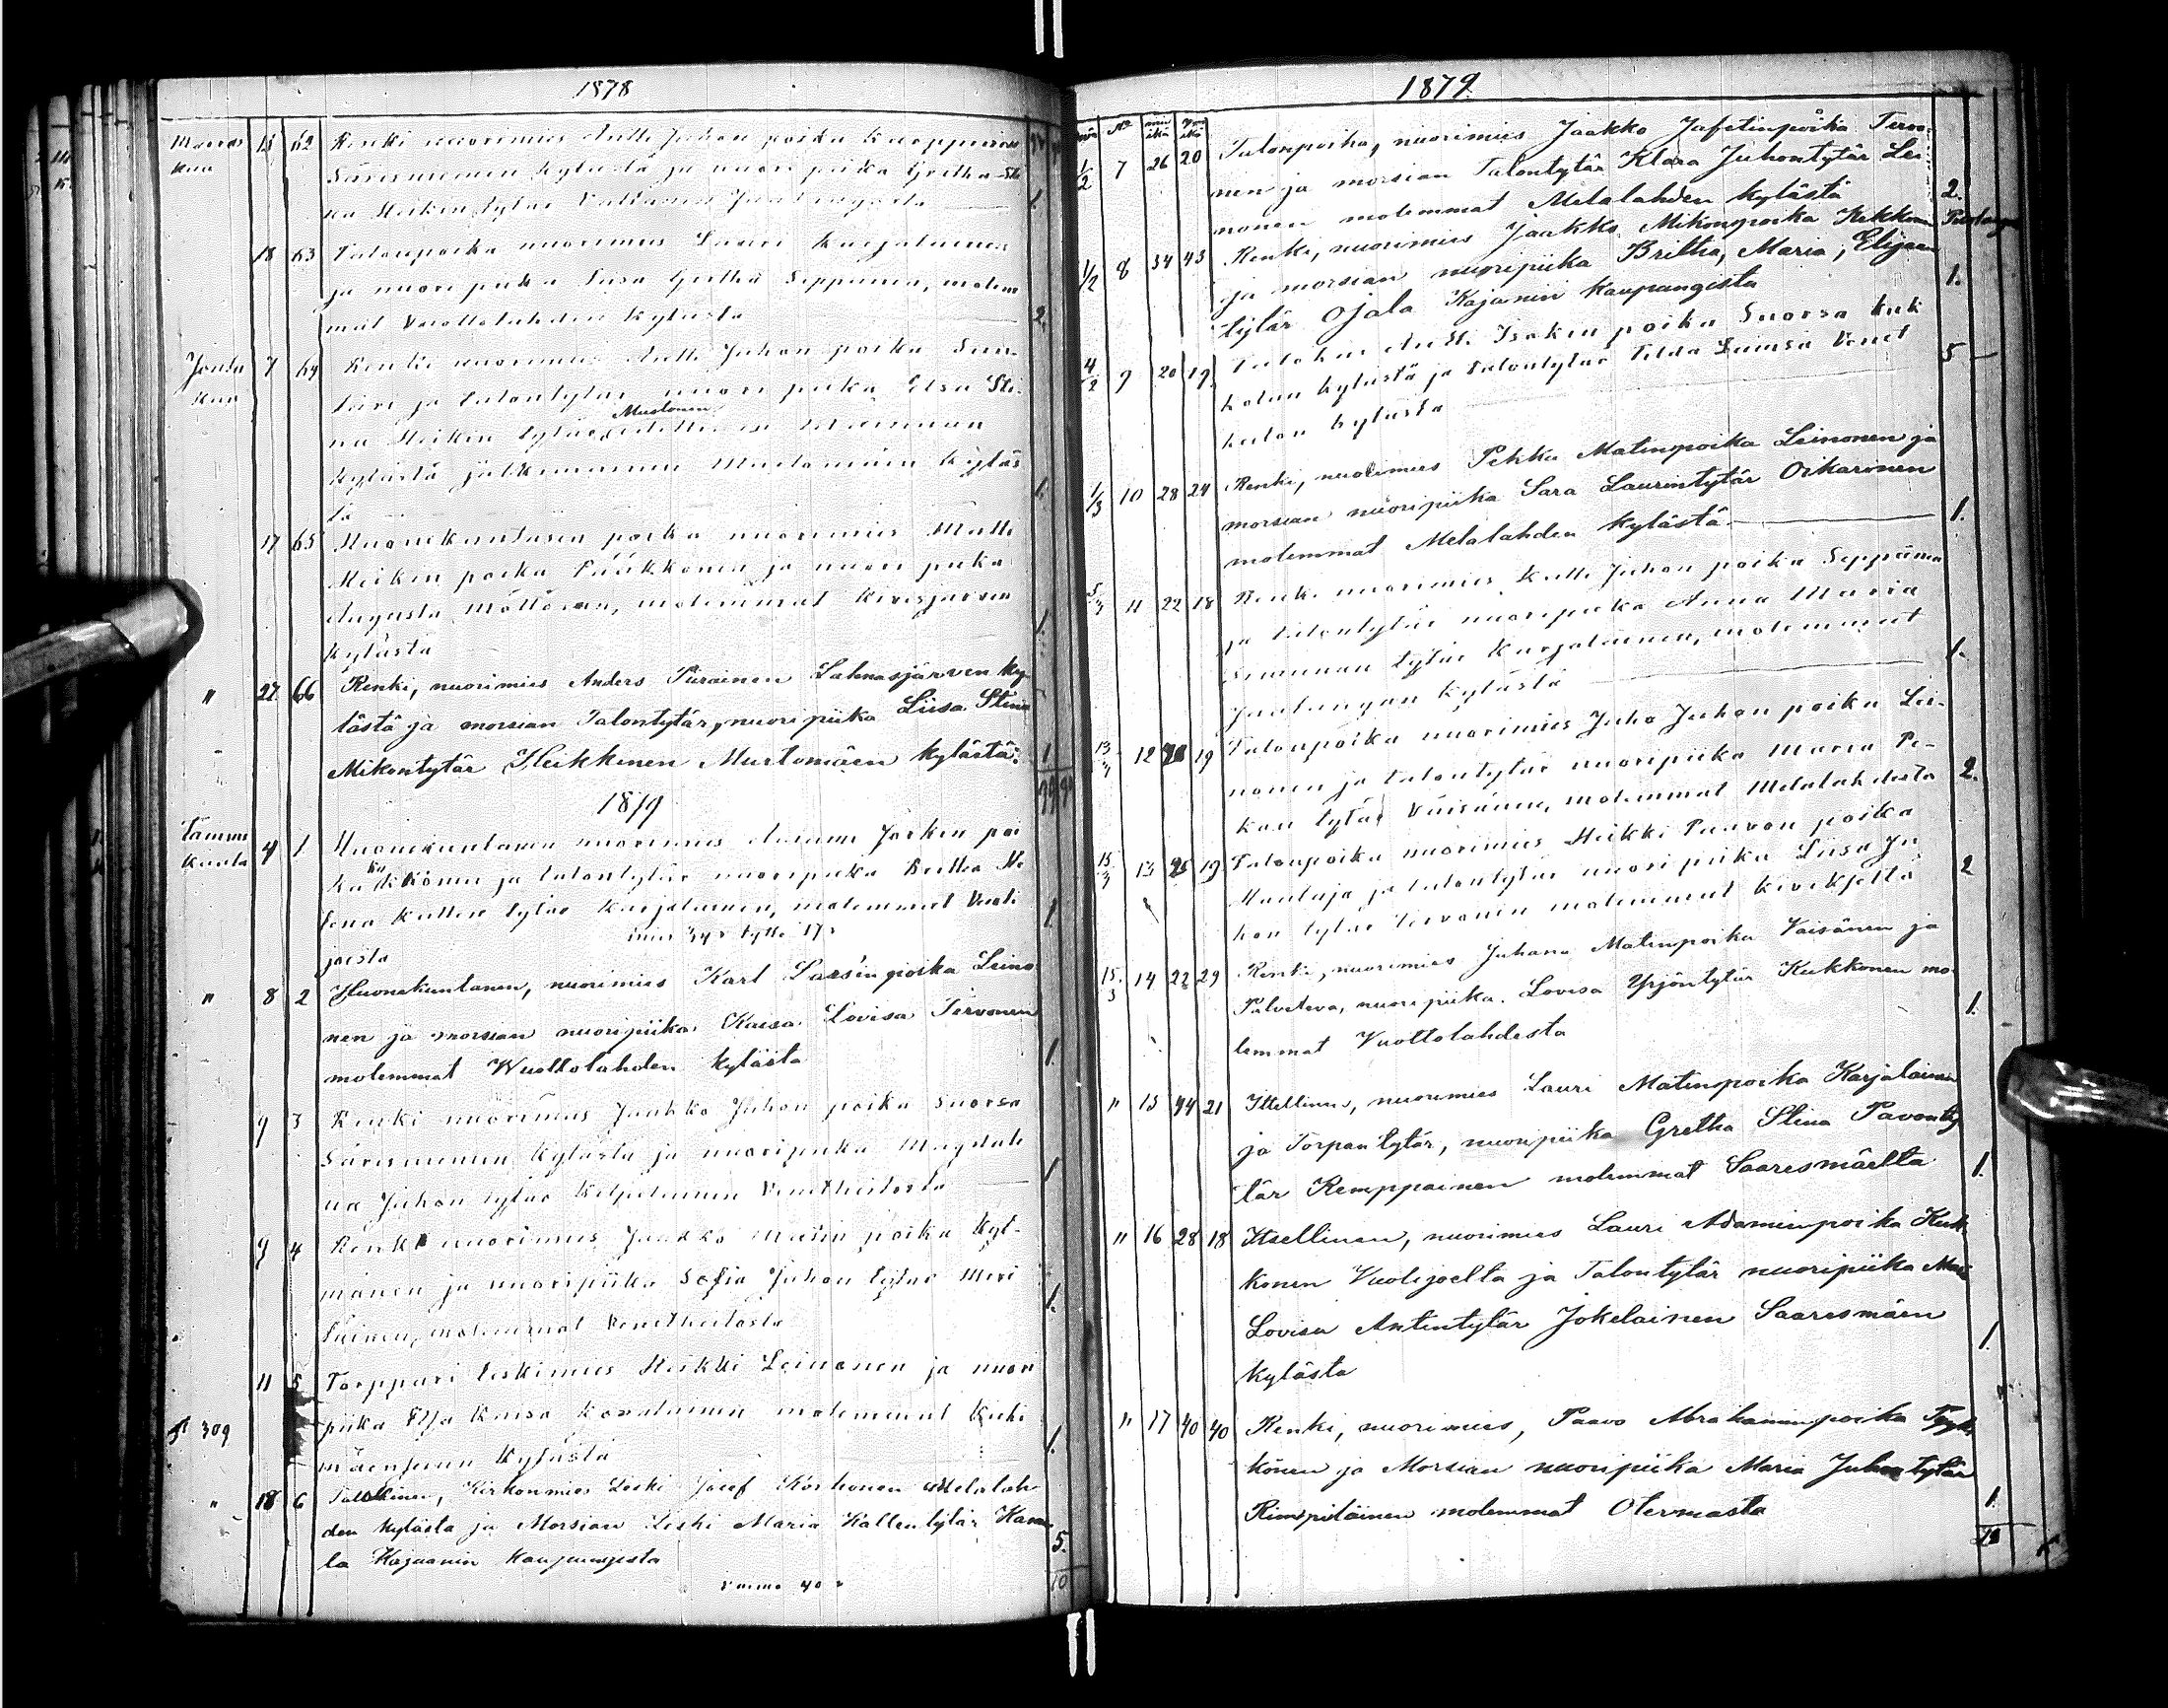 1878
Marras 15 62 Renki nuorimies Antti Juhon poika Karppinen
kuu Säresniemen kylästä ja nuori piika Gretha Sti
na Heikin tytär Vattunen Jaalangasta 1.
18 63 Talonpoika nuorimies Lauri Karjalainen
ja nuori piika Liisa Gretha Seppänen, molem
mat Vuottolahden kylästä 2.
Joulu 7 64 Renki nuorimies Antti Juhon poika
kuu ja talontytär nuori piika Elsa Sti
Mustonen
na Heikin tytär, edellinen
kylästä jälkimäinen Murtomäen kyläs
tä 1.
17 65 Huonekuntasen poika nuorimies Matti
Heikin poika Pääkkönen ja nuori piika
Augusta Möttönen, molemmat Kivesjärven
kylästä 1.
" 27 66 Renki, nuorimies Anders Piirainen Lahnasjärven ky
lästä ja morsian Talontytär, nuori piika Liisa Stina
Mikontytär Heikkinen Murtomäen kylästä 1
1879
Tammi 4 1 Huonekuntanen nuorimies Aatami Jaakon poi
kuuta ka Kukkonen ja talontytär nuoripiika Britha He
lena Kallen tytär Karjalainen, molemmat Vuoli 1.
mies 34 v tyttö 17 v
joesta
" 8 2 Huonekuntanen, nuorimies Karl Larsinpoika Leino
nen ja morsian nuoripiika Kaisa Lovisa Tervonen
molemmat Wuottolahden kylästa 1.
9 3 Renki nuorimies Jaakko Juhon poika Suorsa
Säresniemen kylästä ja nuoripiika Magdale
na Juhon tytär Kilpeläinen Venetheitosta 1
9 4 Renki nuorimies Jaakko Matin poika Kyl-
mänen ja nuoripiika Sofia Juhon tytär Meri
läinen, molemmat Venetheitosta 1.
11 5 Torppari leskimies Heikki Leinonen ja nuori
piika Elsa Kaisa Kovalainen molemmat
309 kylästä 1.
" 18 6 Talollinen, Kirkonmies Leski Josef Korhonen Melalah
den kylästa ja Morsian Leski Maria Kallentytär
la Kajaanin kaupungista 5.
vaimo 40 v 10
1879
No mies ikä
1/2 7 26 20 Talonpoika, nuorimies Jaakko Jafetinpoika Tervo-
nen ja morsian Talontytär Klara Juhontytär Lei
nonen molemmat Melalahden kylästä 2.
1/2 8 34 43 Renki, nuorimies Jaakko Mikonpoika Kekkonen
ja morsian nuoripiika Britha, Maria, Elijaan
tytär Ojala Kajanin kaupungista 1.
4/2 9 20 19 Talokas Antti Isakin poika Suorsa Kuk
kolan kylästä ja talontytär Tilda Leinosa Venet 5
heiton kylästa
1/3 10 28 24 Renki, nuorimies Pekka Matinpoika Leinonen ja
morsian nuoripiika Sara Laurintytär Oikarinen
molemmat Melalahden kylästä 1.
5/3 11 22 18 Renki nuorimies Kalle Juhon poika Seppänen
ja talontytär nuoripiika Anna Maria
Simunan tytär Karjalainen, molemmat
Jaalangan kylästä 1.
13/3 12 19 Talonpoika nuorimies Juho Juhon poika Lei-
nonen ja talontytär nuoripiika Maria Pe-
kan tytär Väisänen, molemmat Melalahdesta 2.
15/3 13 25 19 Talonpoika nuorimies Heikki Paavon poika
Mantaja ja talontytär nuori piika Liisa Ju
hon tytär Tervonen molemmat Kivekseltä 2
15/3 14 22 29 Renki, nuorimies Juhana Matinpoika Väisänen ja
Palveleva, nuori piika Lovisa Yrjöntytär Kukkonen mo
lemmat Vuottolahdesta 1.
" 15 44 21 Itsellinen, nuorimies Lauri Matinpoika Karjalainen
ja Torpantytär, nuoripiika Gretha Stina Pavonty
tär Kemppainen molemmat Saaresmäelta 1.
" 16 28 18 Itsellinen, nuorimies Lauri Adaminpoika Kuk
konen Vuolijoelta ja Talontytär nuoripiika
Lovisa Antintytär Jokelainen Saaresmäen
kylästa 1.
" 17 40 40 Renki, nuorimies, Paavo Abrahaminpoika
könen ja Morsian nuoripiika Maria Juhon tytär
Rimpiläinen molemmat Otermasta 1.